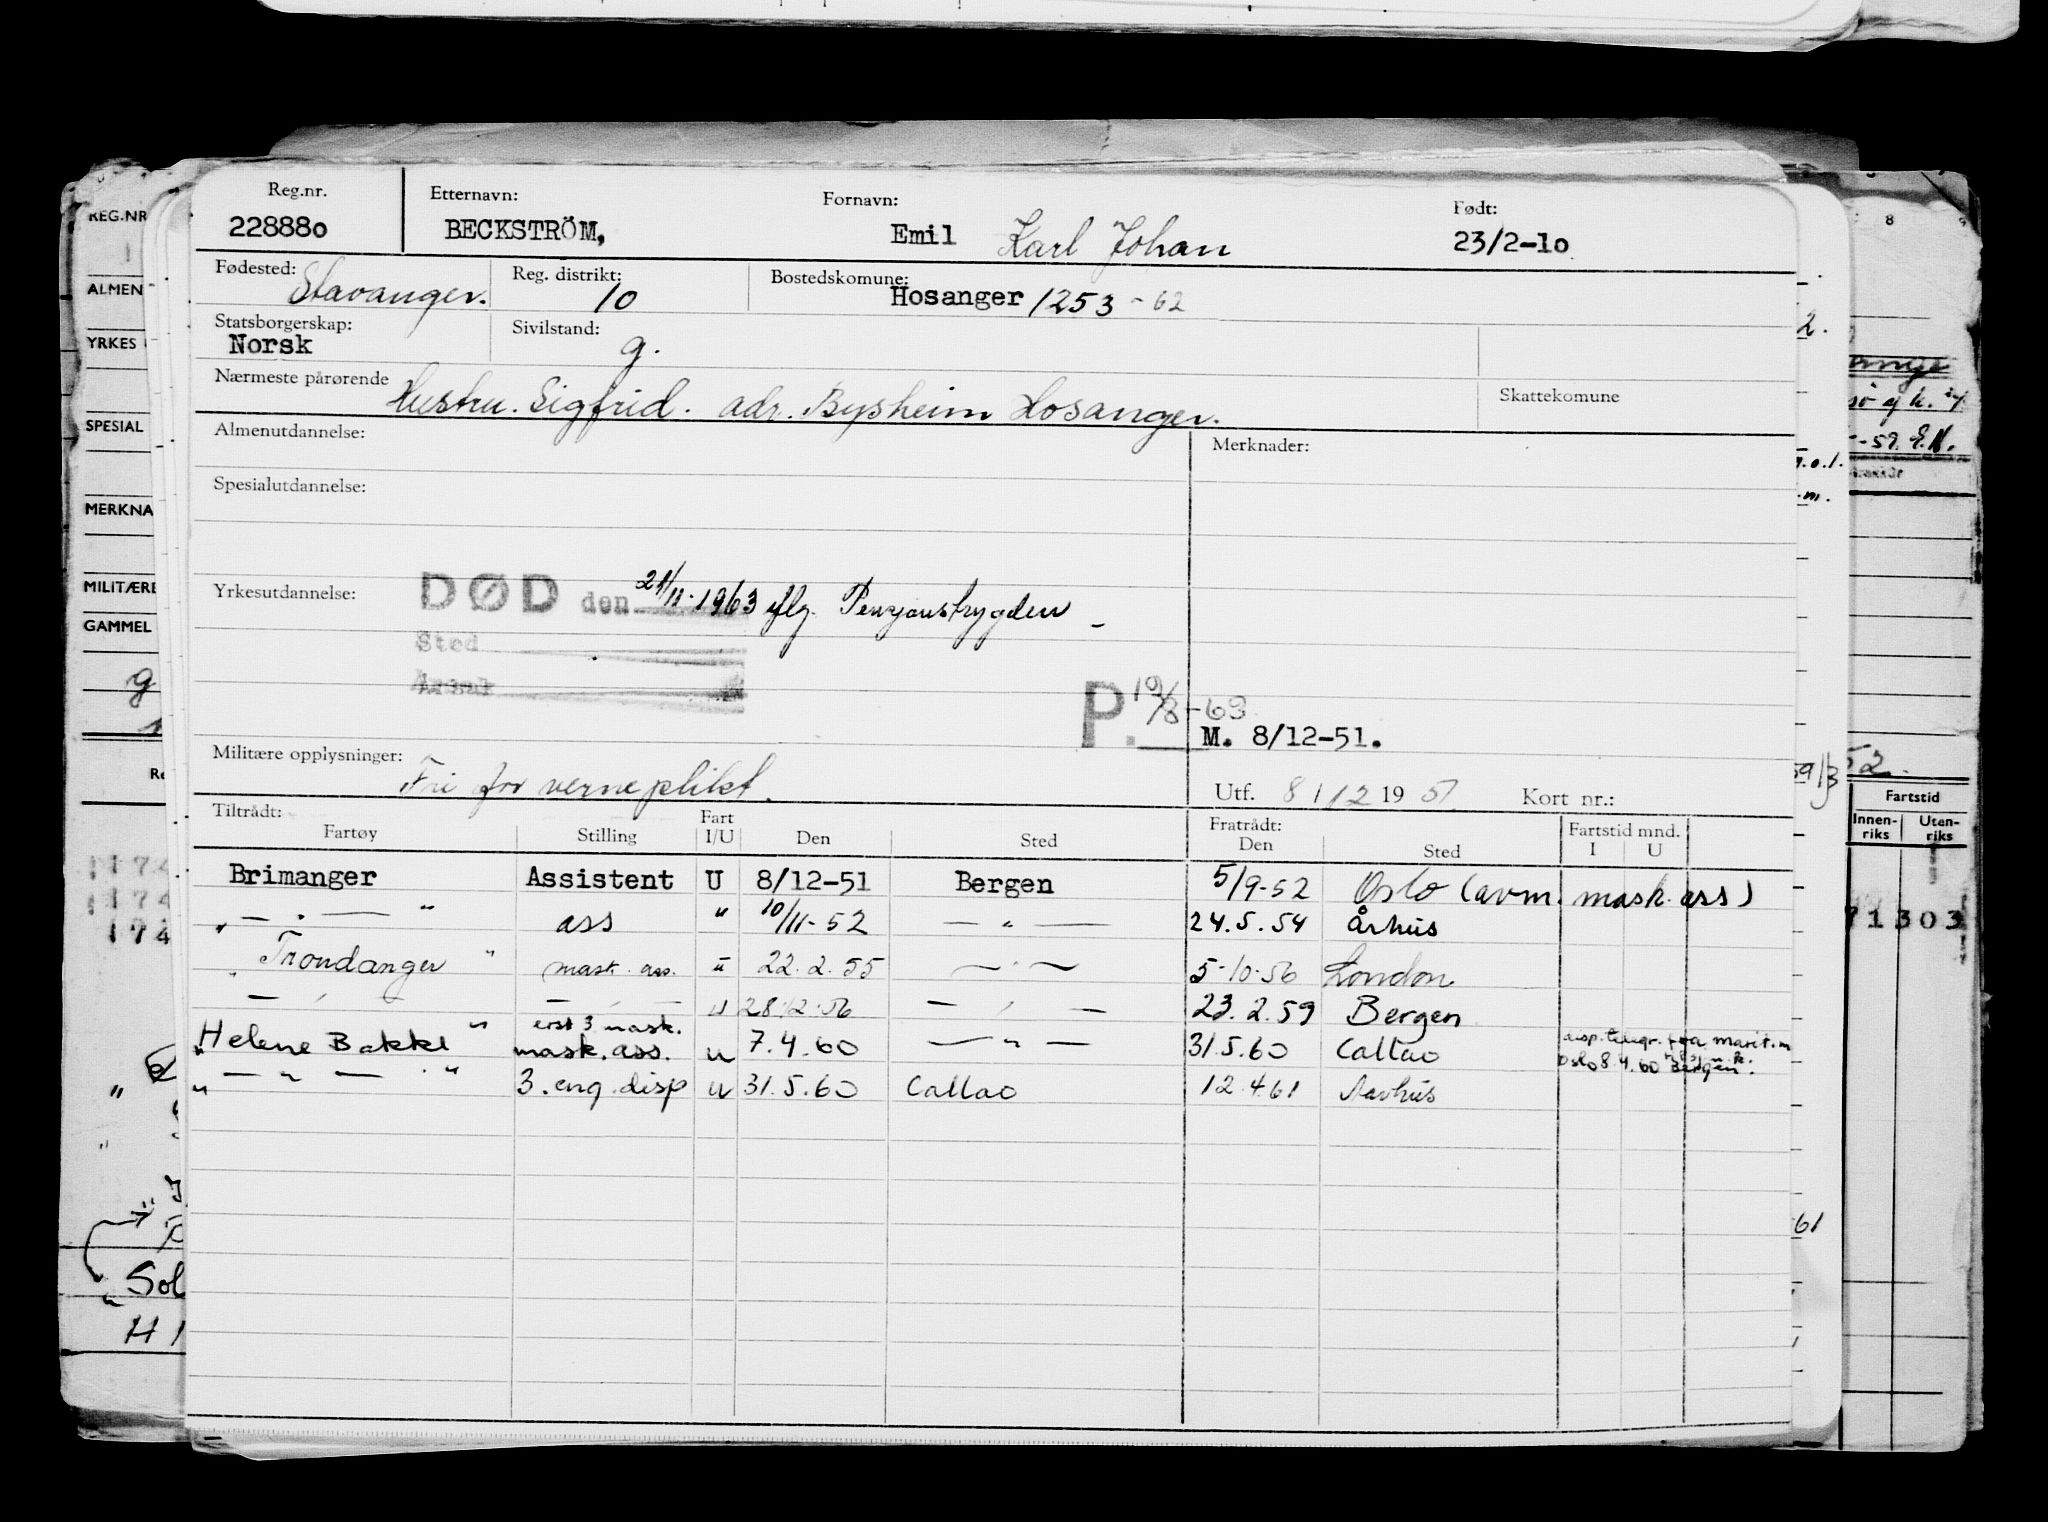 Reg.nr. Etternavn: Fornavn: Født:
228880 BECKSTRÖM, Emil Karl Johan 23/2-10
Fødested: Stavanger. Reg. distrikt: 10 Bostedskomune: Hosanger 1253 - 62
Statsborgerskap: Norsk Sivilstand: g.
Nærmeste pårørende Hustru. Sigfrid. adr. Bysheim Hosanger. Skattekomune
Almenutdannelse: Merknader:
Spesialutdannelse:
Yrkesutdannelse: DØD den 21/11-1963 iflg. Pensjonstrygden
Sted
Årsak
P. 19/8-63
M. 8/12-51.
Militære opplysninger: Fri for verneplikt. Utf. 8/12 1951 Kort nr.:
Tiltrådt: Fart Fratrådt: Fartstid mnd.
Fartøy Stilling I/U Den Sted Den Sted I U
Brimanger Assistent U 8/12-51 Bergen 5/9-52 Oslo (avm. mask. ass)
" — " — " ass " 10/11-52 — " — 24.5.54 Århus
" Trondanger " mask. ass. " 22.2.55 — " — 5-10-56 London
— " — — " — " 28.12.56 — " — 23.2.59 Bergen
erst 3 mask.
" Helene Bakke " mask. ass. u 7.4.60 — " — 31.5.60 Callao
Oslo 8.4.60 Bergen
" — " — " 3. eng. disp u 31.5.60 Callao 12.4.61 Aarhus
REG.NR
ALMEN
YRKES
SPESIAL
MERKNA
MILITÆRE
GAMMEL
g
174
174
174
Sol
H
8
2.
-59. E.N.
52.
Fartstid
Innen-riks Uten-riks
71303
61